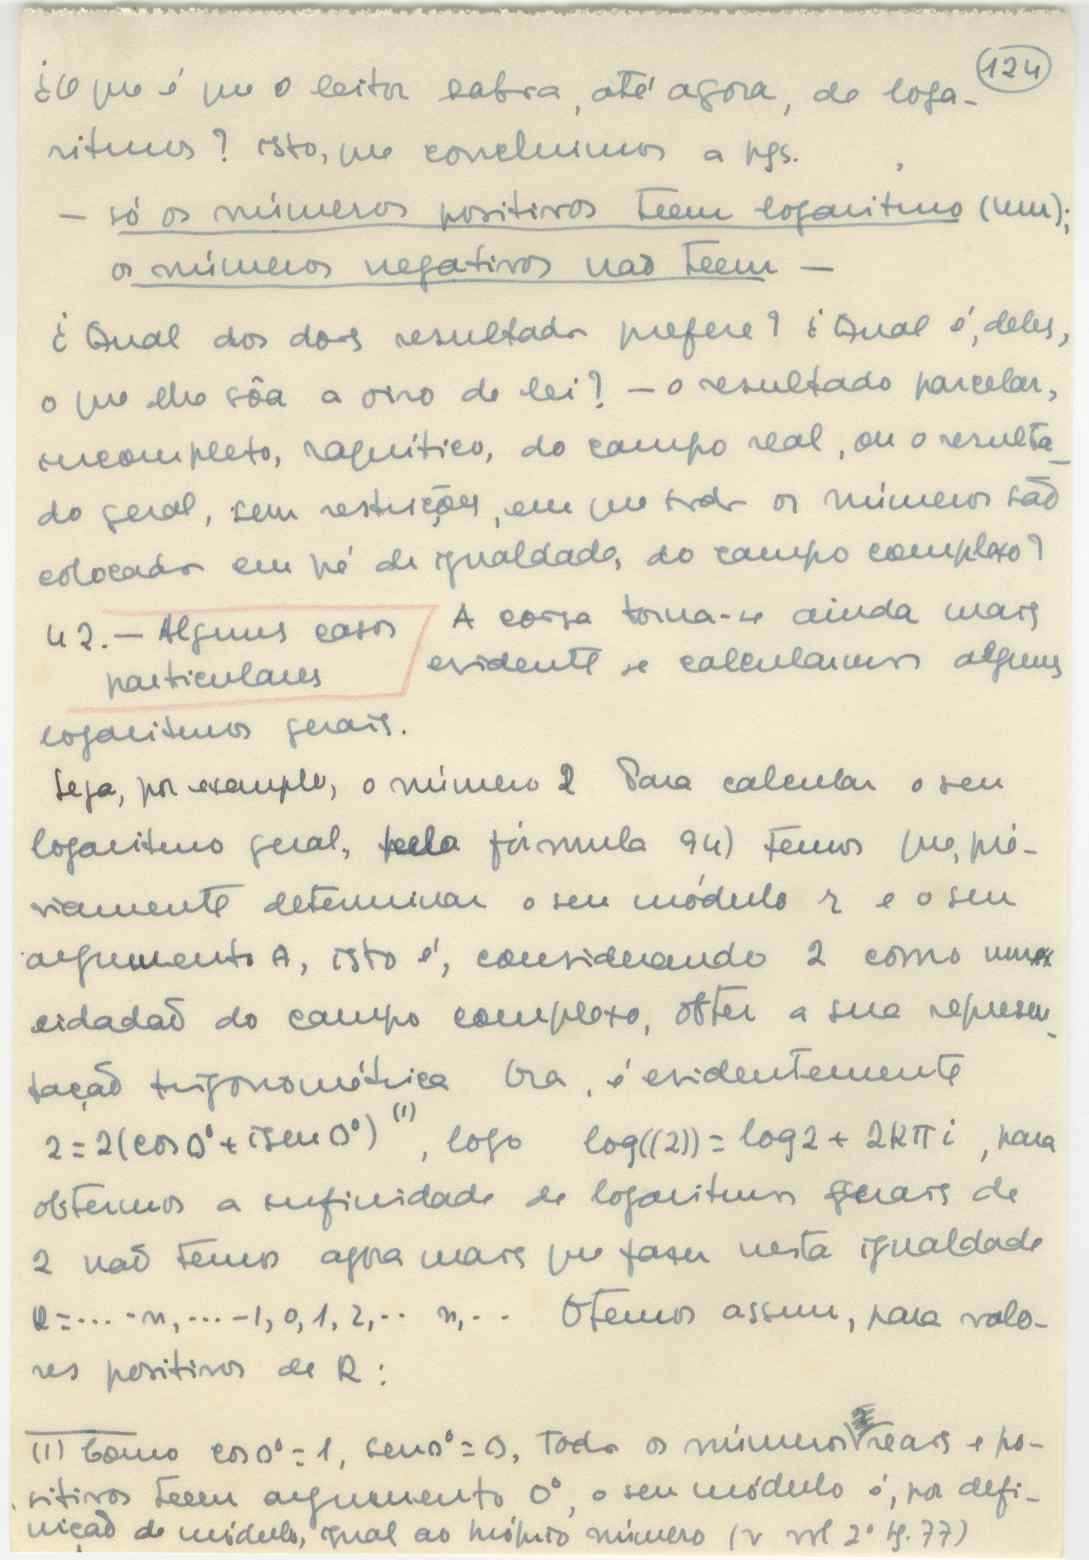 124
¿O que é que o leitor sabia, até agora, de loga-
ritmos? isto, que concluimos a pgs.      ,
— só os números positivos teem logaritmo (um);
os números negativos não teem —
¿Qual dos dois resultados prefere? ¿Qual é, deles,
o que lhe sôa a oiro de lei? — o resultado parcelar,
incompleto, raquítico, do campo real, ou o resulta-
do geral, sem restrições, em que todos os números são
colocados em pé de igualdade, do campo complexo?
42. — Alguns casos A coisa torna-se ainda mais
particulares evidente se calcularmos alguns
logaritmos gerais.
Seja, por exemplo, o número 2 Para calcular o seu
logaritmo geral, pela fórmula 94) temos que, prè-
viamente determinar o seu módulo r e o seu
argumento A, isto é, considerando 2 como um
cidadão do campo complexo, obter a sua represen-
tação trigonométrica Ora, é evidentemente
2=2(cos0°+isen0°) (1), logo log((2))=log2+2kπi, para
obtermos a infinidade de logaritmos gerais de
2 não temos agora mais que fazer nesta igualdade
k=...-n,...-1,0,1,2,.. n,.. Otemos assim, para valo-
res positivos de k:
(1) Como cos0°=1, sen0°=0, todos os números reais e po-
sitivos teem argumento 0°, o seu módulo é, por defi-
nição de módulo, igual ao próprio número (v vol 2° pg. 77)